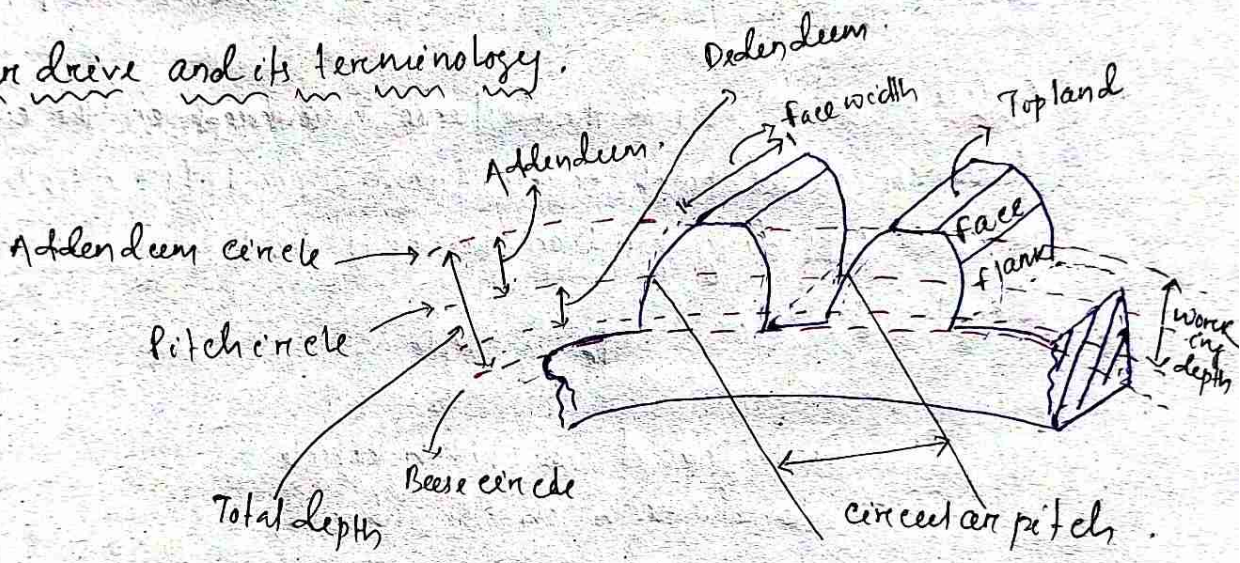 drive and its terminology.
Dedendum.
face width
Top land
Addendum.
Addendum circle
face
flank
Pitch circle
work
ing
depth
Base circle
Total depth
circular pitch.